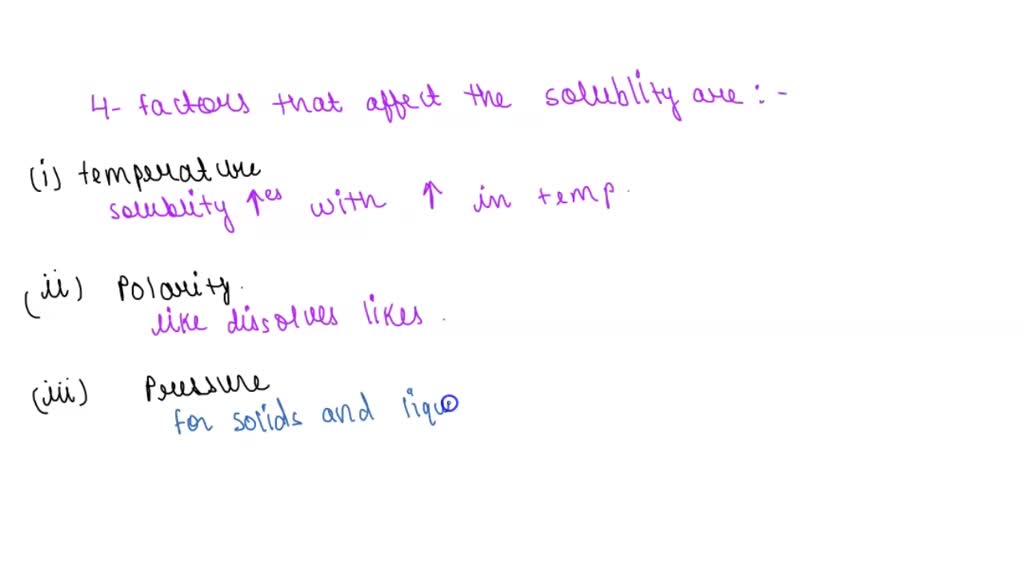 4- factors that affect the solublity are : -
(i) temperature
solublity ↑es with ↑ in temp.
(ii) Polarity.
like dissolves likes.
(iii) Pressure
for solids and liqu